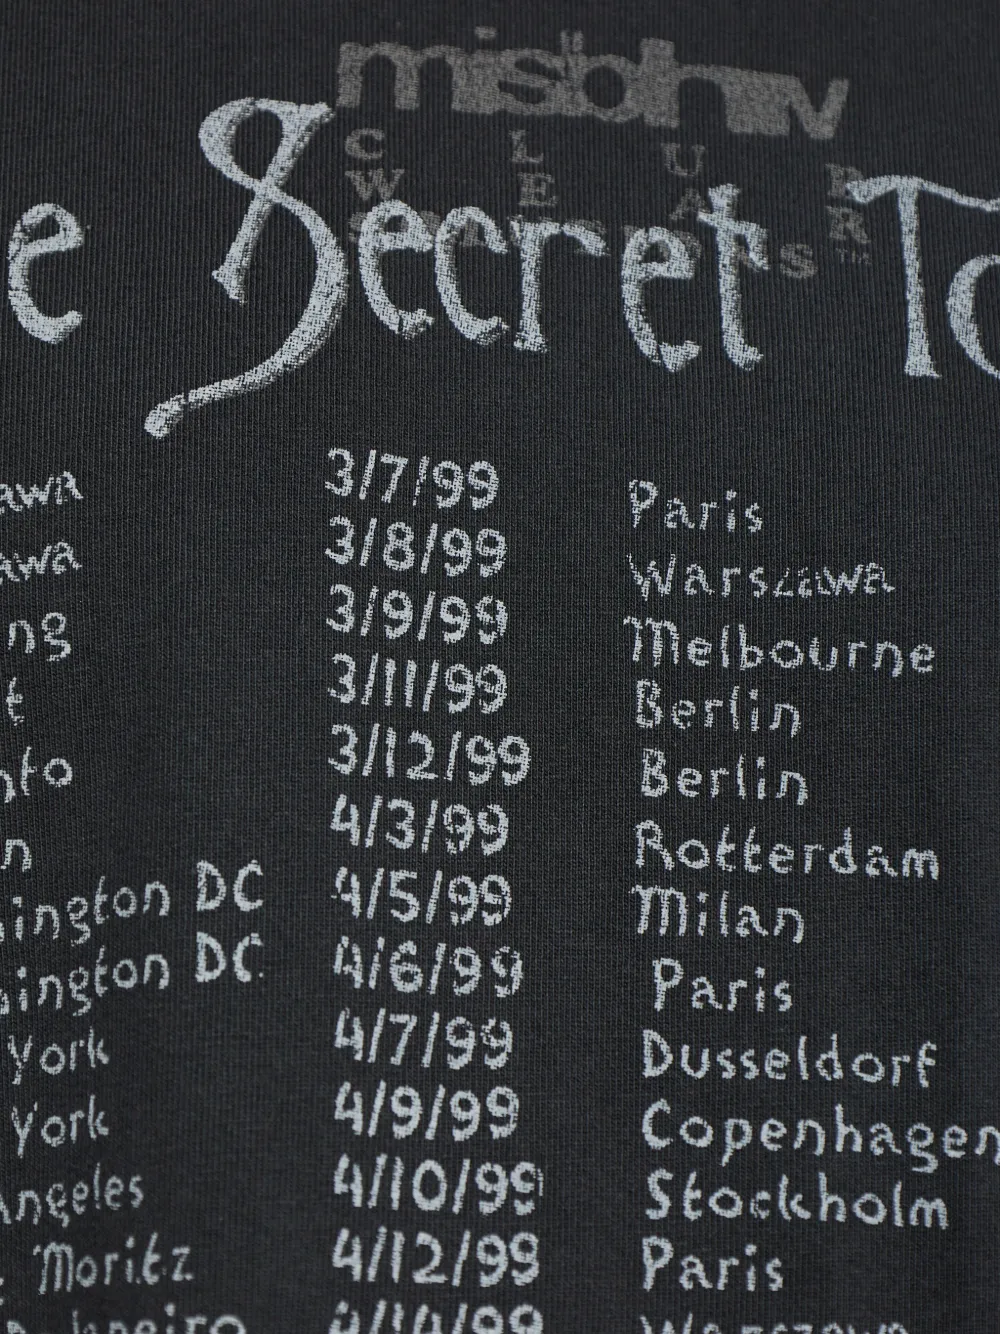 misbhv
C L U B
W E A R
e Secret To
awa 3/7/99 Paris
awa 3/8/99 Warszawa
ng 3/9/99 Melbourne
t 3/11/99 Berlin
nto 3/12/99 Berlin
n 4/3/99 Rotterdam
ington DC 4/5/99 Milan
hington DC 4/6/99 Paris
York 4/7/99 Dusseldorf
York 4/9/99 Copenhagen
Angeles 4/10/99 Stockholm
. Moritz 4/12/99 Paris
Janeiro 4/14/99 Warszawa